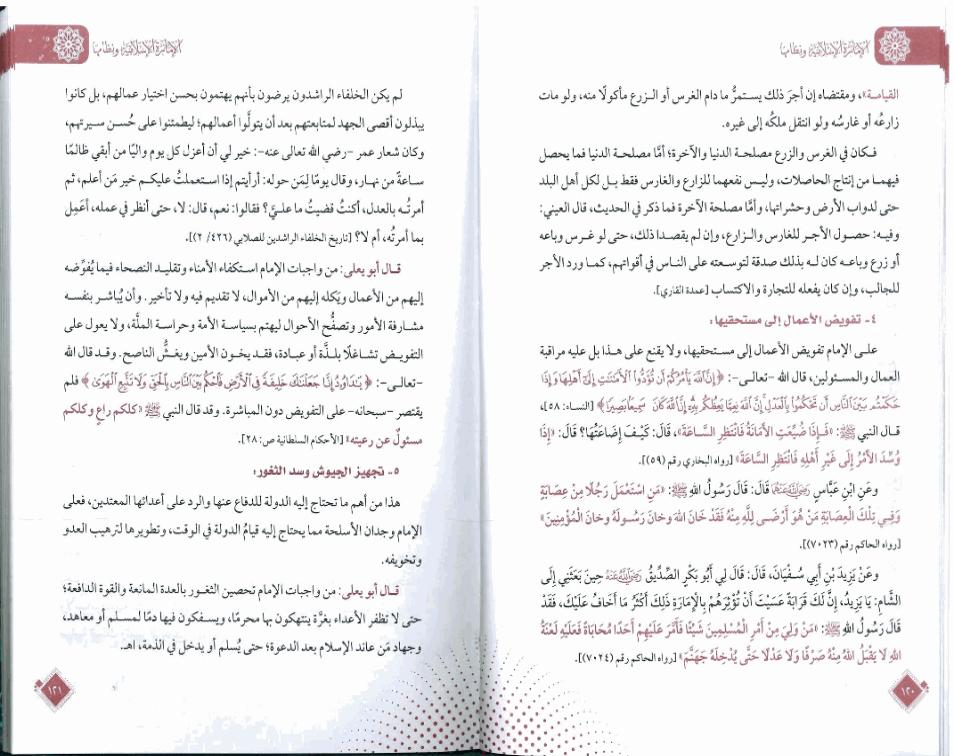 الإمارة الإسلامية ونظامها
القيامة»، ومقتضاه إن أجرَ ذلك يستمرُّ ما دام الغرس أو الزرع مأكولًا منه، ولو مات
زارعُه أو غارسُه ولو انتقل ملكُه إلى غيره.
فكان في الغرس والزرع مصلحة الدنيا والآخرة؛ أمَّا مصلحة الدنيا فما يحصل
فيهما من إنتاج الحاصلات، وليس نفعهما للزارع والغارس فقط بل لكل أهل البلد
حتى لدواب الأرض وحشراتها، وأمَّا مصلحة الآخرة فما ذكر في الحديث، قال العيني:
وفيه: حصول الأجر للغارس والزارع، وإن لم يقصدا ذلك، حتى لو غرس وباعه
أو زرع وباعه كان له بذلك صدقة لتوسعته على الناس في أقواتهم، كما ورد الأجر
للجالب، وإن كان يفعله للتجارة والاكتساب [عمدة القاري].
٤- تفويض الأعمال إلى مستحقيها:
على الإمام تفويض الأعمال إلى مستحقيها، ولا يقنع على هذا بل عليه مراقبة
العمال والمسئولين، قال الله -تعالى-: ﴿إِنَّ ٱللَّهَ يَأْمُرُكُمْ أَن تُؤَدُّوا۟ ٱلْأَمَٰنَٰتِ إِلَىٰٓ أَهْلِهَا وَإِذَا
حَكَمْتُم بَيْنَ ٱلنَّاسِ أَن تَحْكُمُوا۟ بِٱلْعَدْلِ ۚ إِنَّ ٱللَّهَ نِعِمَّا يَعِظُكُم بِهِۦٓ ۗ إِنَّ ٱللَّهَ كَانَ سَمِيعًۢا بَصِيرًا﴾ [النساء: ٥٨]،
قال النبي ﷺ: «فَإِذَا ضُيِّعَتِ الأَمَانَةُ فَانْتَظِرِ السَّاعَةَ»، قَالَ: كَيْفَ إِضَاعَتُهَا؟ قَالَ: «إِذَا
وُسِّدَ الأَمْرُ إِلَى غَيْرِ أَهْلِهِ فَانْتَظِرِ السَّاعَةَ» [رواه البخاري رقم (٥٩)].
وعَنِ ابْنِ عَبَّاسٍ رَضِيَ اللَّهُ عَنْهُ قَالَ: قَالَ رَسُولُ اللهِ ﷺ: «مَنِ اسْتَعْمَلَ رَجُلًا مِنْ عِصَابَةٍ
وَفِي تِلْكَ الْعِصَابَةِ مَنْ هُوَ أَرْضَى لِلَّهِ مِنْهُ فَقَدْ خَانَ اللهَ وخَانَ رَسُولَهُ وخَانَ الْمُؤْمِنِينَ»
[رواه الحاكم رقم (٧٠٢٣)].
وعَنْ يَزِيدَ بْنِ أَبِي سُفْيَانَ، قَالَ: قَالَ لِي أَبُو بَكْرٍ الصِّدِّيقُ رَضِيَ اللَّهُ عَنْهُ حِينَ بَعَثَنِي إِلَى
الشَّامِ: يَا يَزِيدُ، إِنَّ لَكَ قَرَابَةً عَسَيْتَ أَنْ تُؤْثِرَهُمْ بِالْإِمَارَةِ ذَلِكَ أَكْثَرُ مَا أَخَافُ عَلَيْكَ، فَقَدْ
قَالَ رَسُولُ اللهِ ﷺ: «مَنْ وَلِيَ مِنْ أَمْرِ الْمُسْلِمِينَ شَيْئًا فَأَمَّرَ عَلَيْهِمْ أَحَدًا مُحَابَاةً فَعَلَيْهِ لَعْنَةُ
اللهِ لَا يَقْبَلُ اللهُ مِنْهُ صَرْفًا وَلَا عَدْلًا حَتَّى يُدْخِلَهُ جَهَنَّمَ» [رواه الحاكم رقم (٧٠٢٤)].
١٢٠
الإمارة الإسلامية ونظامها
لم يكن الخلفاء الراشدون يرضون بأنهم يهتمون بحسن اختيار عمالهم، بل كانوا
يبذلون أقصى الجهد لمتابعتهم بعد أن يتولَّوا أعمالهم؛ ليطمئنوا على حُسن سيرتهم،
وكان شعار عمر -رضي الله تعالى عنه-: خير لي أن أعزل كل يوم واليًا من أبقي ظالمًا
ساعةً من نهار، وقال يومًا لِمَن حوله: أرأيتم إذا استعملتُ عليكم خير مَن أعلم، ثم
أمرتُه بالعدل، أكنتُ قضيتُ ما عليَّ؟ فقالوا: نعم، قال: لا، حتى أنظر في عمله، أعَمِل
بما أمرتُه، أم لا؟ [تاريخ الخلفاء الراشدين للصلابي (٤٢٦/ ٢)].
قال أبو يعلى: من واجبات الإمام استكفاء الأمناء وتقليد النصحاء فيما يُفوِّضه
إليهم من الأعمال ويَكله إليهم من الأموال، لا تقديم فيه ولا تأخير. وأن يُباشر بنفسه
مشارفة الأمور وتصفُّح الأحوال ليهتم بسياسة الأمة وحراسة الملَّة، ولا يعول على
التفويض تشاغلًا بلذَّة أو عبادة، فقد يخون الأمين ويغشُّ الناصح. وقد قال الله
-تعالى-: ﴿يَٰدَاوُۥدُ إِنَّا جَعَلْنَٰكَ خَلِيفَةً فِى ٱلْأَرْضِ فَٱحْكُم بَيْنَ ٱلنَّاسِ بِٱلْحَقِّ وَلَا تَتَّبِعِ ٱلْهَوَىٰ﴾ فلم
يقتصر -سبحانه- على التفويض دون المباشرة. وقد قال النبي ﷺ: «كلكم راعٍ وكلكم
مسئولٌ عن رعيته» [الأحكام السلطانية ص: ٢٨].
٥- تجهيز الجيوش وسد الثغور:
هذا من أهم ما تحتاج إليه الدولة للدفاع عنها والرد على أعدائها المعتدين، فعلى
الإمام وجدان الأسلحة مما يحتاج إليه قيامُ الدولة في الوقت، وتطويرها لترهيب العدو
وتخويفه.
قال أبو يعلى: من واجبات الإمام تحصين الثغور بالعدة المانعة والقوة الدافعة؛
حتى لا تظفر الأعداء بغرَّة ينتهكون بها محرمًا، ويسفكون فيها دمًا لمسلم أو معاهد،
وجهاد مَن عاند الإسلام بعد الدعوة؛ حتى يُسلم أو يدخل في الذمة، اهـ.
١٢١